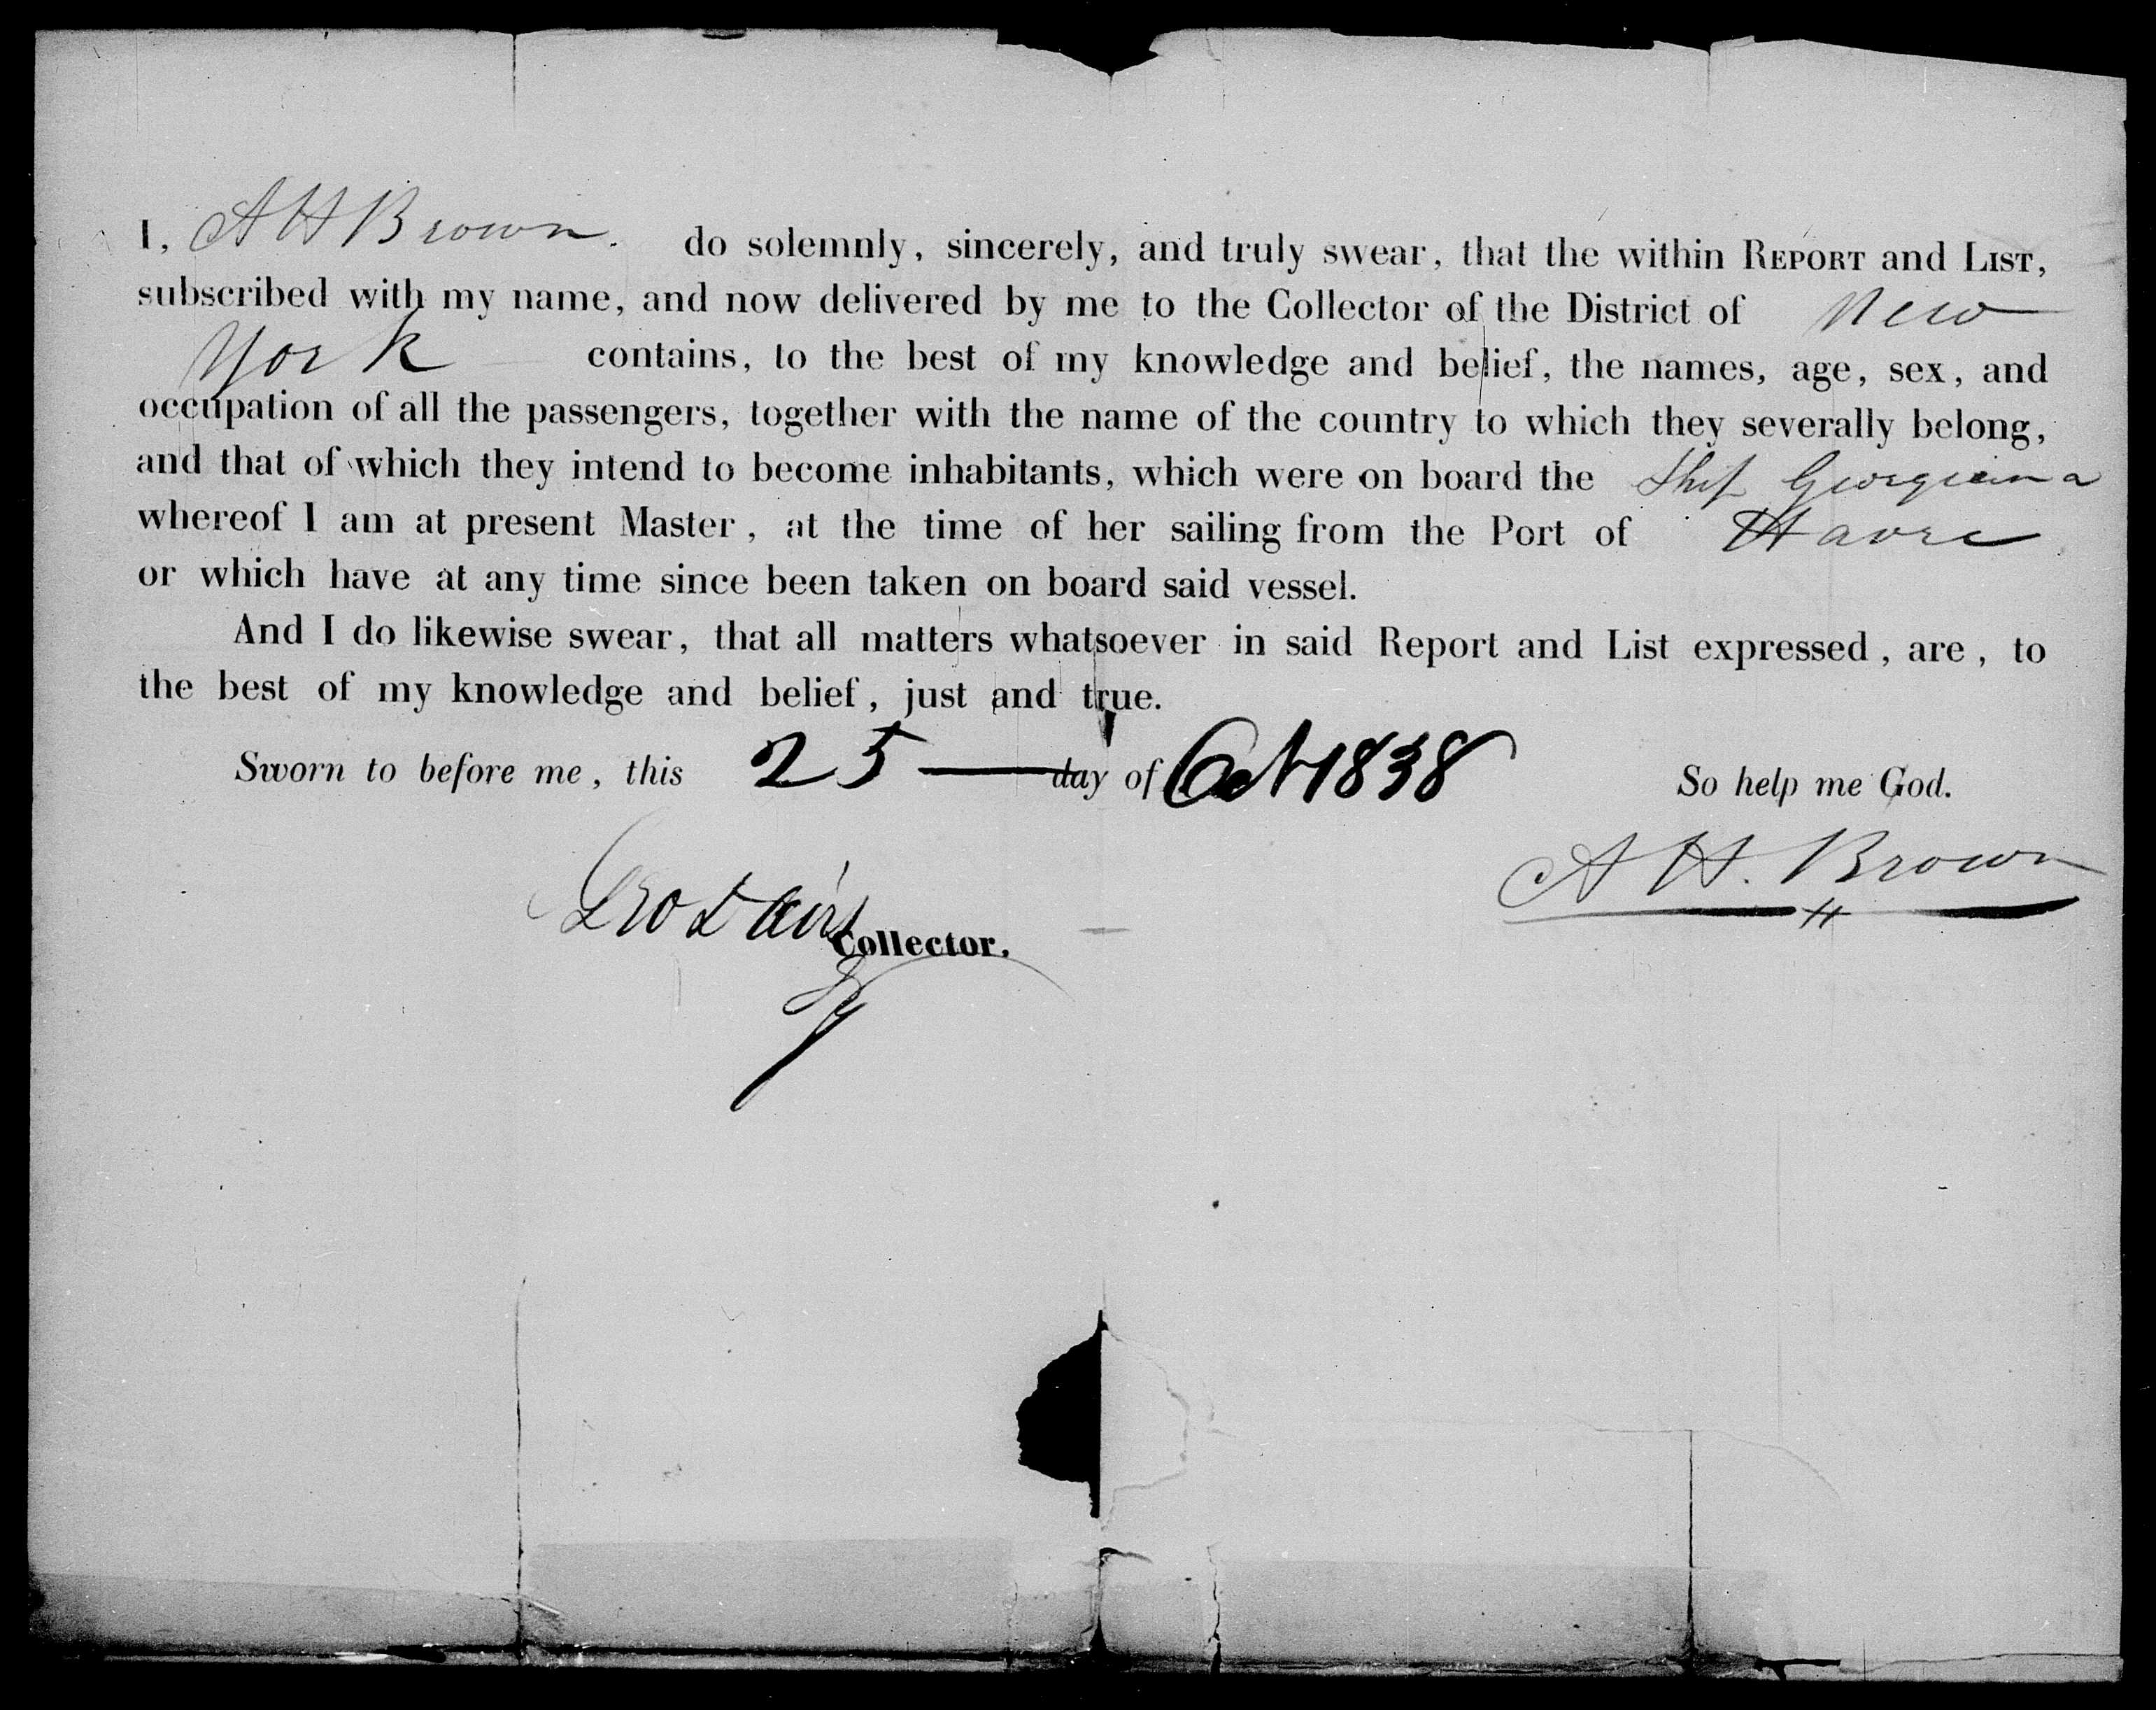 I, A H Brown. do solemnly, sincerely, and truly swear, that the within REPORT and LIST,
subscribed with my name, and now delivered by me to the Collector of the District of New
York contains, to the best of my knowledge and belief, the names, age, sex, and
occupation of all the passengers, together with the name of the country to which they severally belong,
and that of which they intend to become inhabitants, which were on board the Ship Georgiana
whereof I am at present Master, at the time of her sailing from the Port of Havre
or which have at any time since been taken on board said vessel.
And I do likewise swear, that all matters whatsoever in said Report and List expressed, are, to
the best of my knowledge and belief, just and true.
Sworn to before me, this 25 day of Oct 1838 So help me God.
A H. Brown
Geo Davis
Collector.